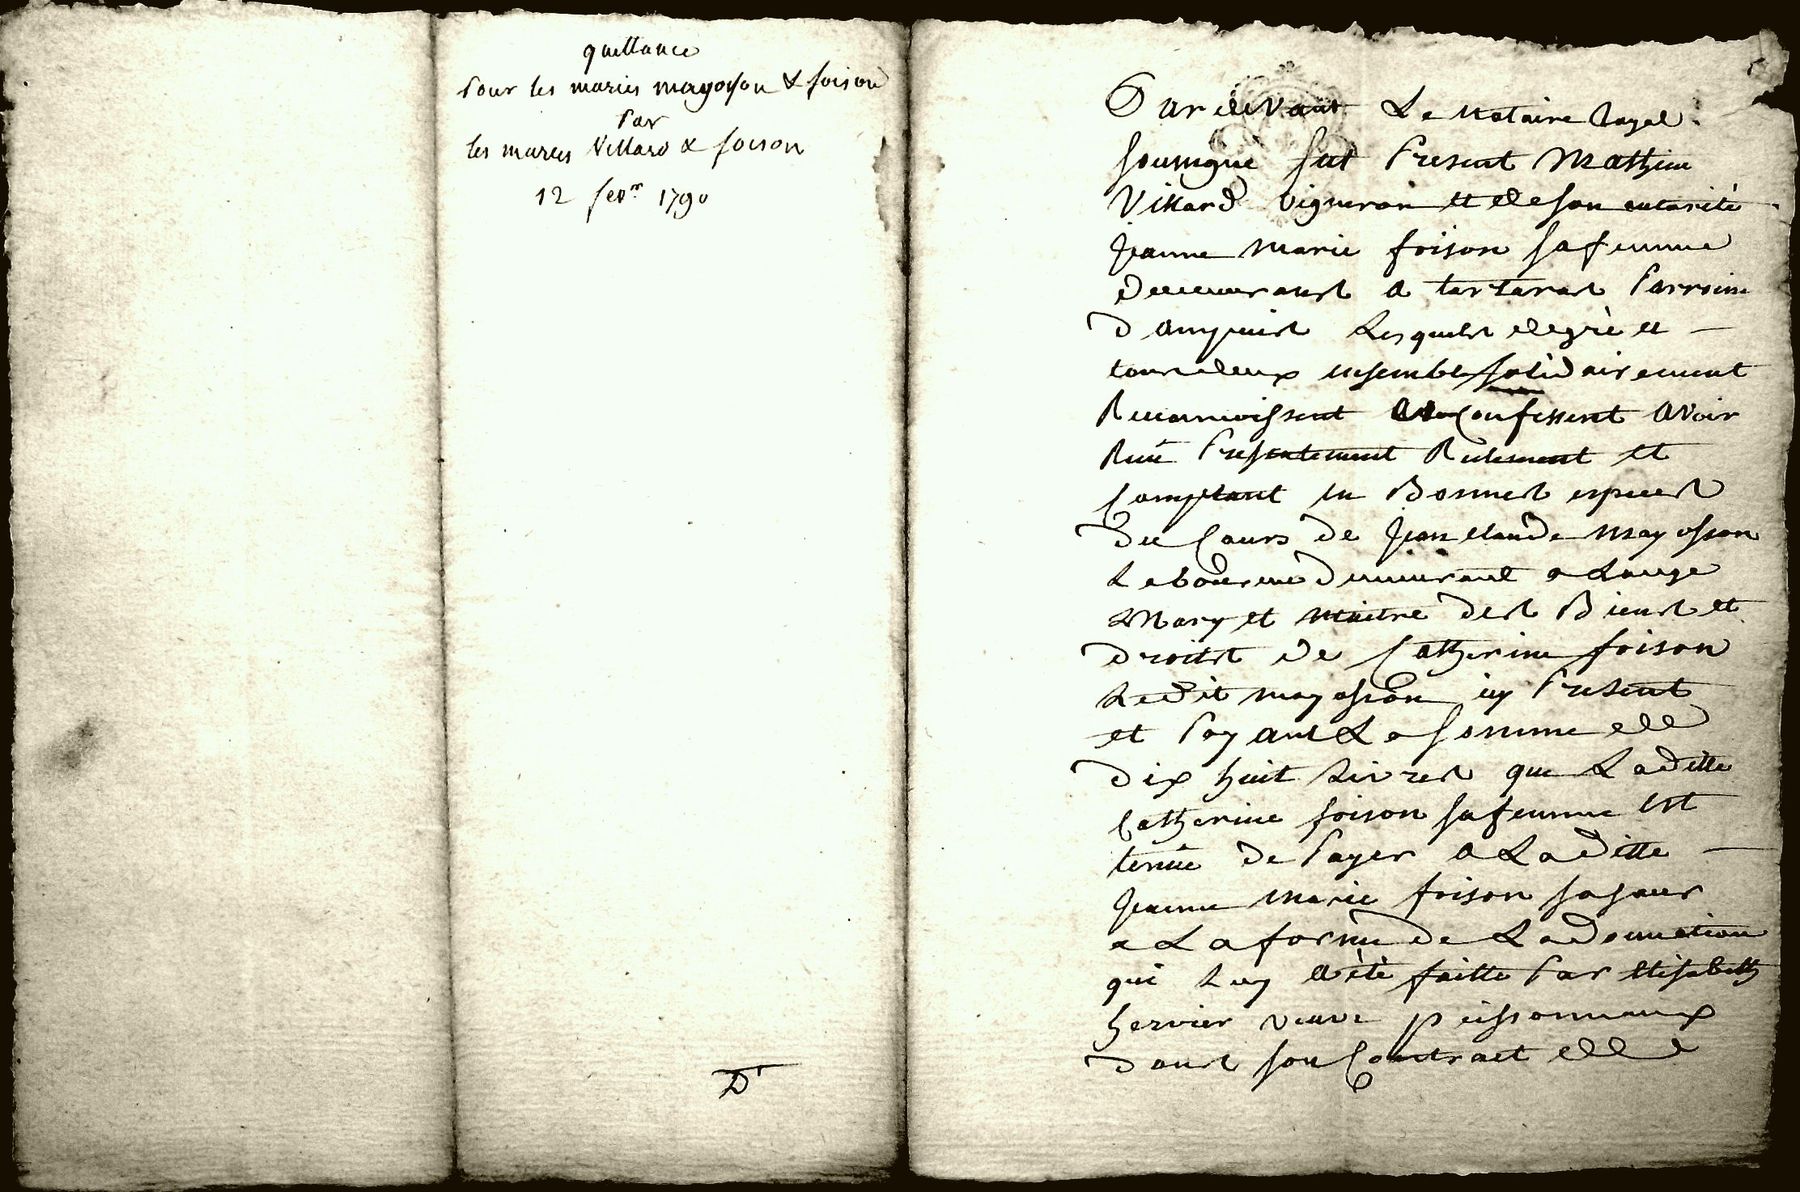 quittance
Pour les mariés mayosson & foison
Par
les mariés Villard & foison
12 fevr. 1790
D
Pardevant Le Notaire Royal
soussigné fut Present Mathieu
Villard vigneron et de son autorité
Jeanne Marie foison sa femme
demeurant a tartaras Parroisse
d'ampuis Lesquels de gré et
tous deux ensemble solidairement
Reconnoissent et confessent avoir
Recu Presentement Reelement et
Comptant en Bonnes especes
du Cours de Jean claude mayosson
Laboureur demeurant a
Mary et maitre des Biens et
droits de Catherine foison
Ledit mayosson icy Present
et Payant La somme de
dix huit Livres que Laditte
Catherine foison sa femme est
tenüe de Payer a Laditte
Jeanne Marie foison sa sœur
a La forme de La donnation
qui Luy a été faitte Par Elisabeth
hervier veuve peissonneaux
dans son Contract de